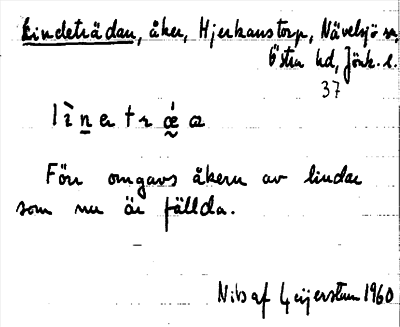 Lindeträdan, åker, Hjerkanstorp, Nävelsjö sn,
Östra hd, Jönk. l.
37
lìnetrǽa
Förr omgavs åkern av lindar
som nu är fällda.
Nils af Geijerstam 1960